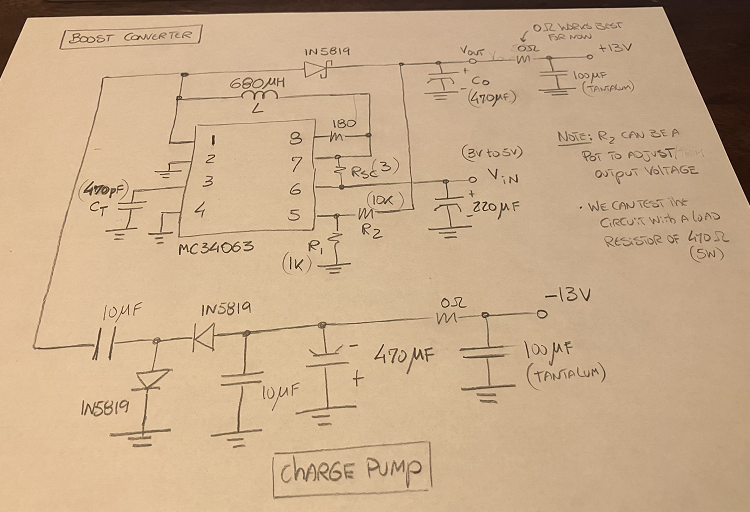 BOOST CONVERTER
1N5819
VOUT
0Ω WORKS BEST
FOR NOW
0Ω
+13V
680µH
L
+
-
CO
(470µF)
100µF
(TANTALUM)
1
2
3
4
8
7
6
5
180
RSC(3)
(3V to 5V)
VIN
(470pF)
CT
(10K)
R2
+
-
220µF
MC34063
R1
(1K)
NOTE: R2 CAN BE A
POT TO ADJUST
OUTPUT VOLTAGE
• WE CAN TEST THE
CIRCUIT WITH A LOAD
RESISTOR OF 470Ω
(5W)
10µF
1N5819
1N5819
10µF
-
+
470µF
0Ω
-13V
100µF
(TANTALUM)
CHARGE PUMP